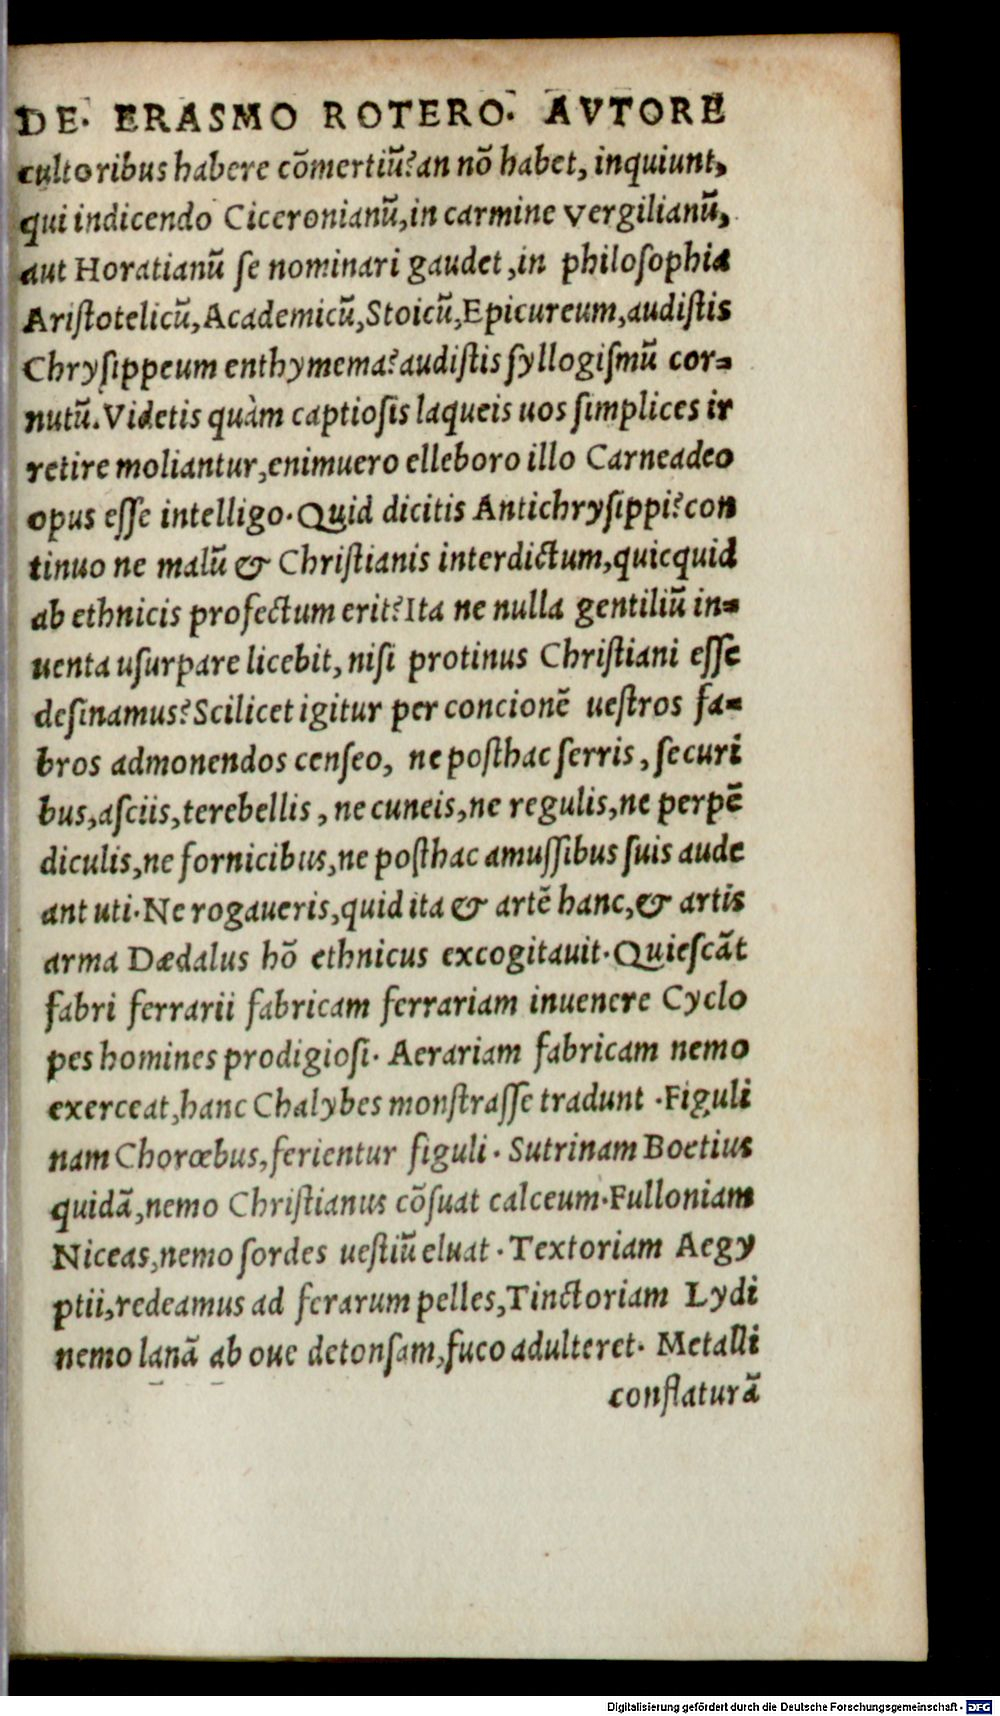 DE. ERASMO ROTERO. AVTORE
cultoribus habere cōmertiū? an nō habet, inquiunt,
qui indicendo Ciceronianū, in carmine Vergilianū,
aut Horatianū ſe nominari gaudet, in philoſophia
Ariſtotelicū, Academicū, Stoicū, Epicureum, audiſtis
Chryſippeum enthymema? audiſtis ſyllogiſmū cor-
nutū. Videtis quàm captioſis laqueis uos ſimplices ir
retire moliantur, enimuero elleboro illo Carneadeo
opus eſſe intelligo. Quid dicitis Antichryſippi? con
tinuo ne malū & Chriſtianis interdictum, quicquid
ab ethnicis profectum erit? Ita ne nulla gentiliū in-
uenta uſurpare licebit, niſi protinus Chriſtiani eſſe
deſinamus? Scilicet igitur per concionē ueſtros fa-
bros admonendos cenſeo, ne poſthac ſerris, ſecuri
bus, aſciis, terebellis, ne cuneis, ne regulis, ne perpē
diculis, ne fornicibus, ne poſthac amuſſibus ſuis aude
ant uti. Ne rogaueris, quid ita & artē hanc, & artis
arma Dædalus hō ethnicus excogitauit. Quieſcāt
fabri ferrarii fabricam ferrariam inuenere Cyclo
pes homines prodigioſi. Aerariam fabricam nemo
exerceat, hanc Chalybes monſtraſſe tradunt. Figuli
nam Chorœbus, ferientur figuli. Sutrinam Boetius
quidā, nemo Chriſtianus cōſuat calceum. Fulloniam
Niceas, nemo ſordes ueſtiū eluat. Textoriam Aegy
ptii, redeamus ad ferarum pelles, Tinctoriam Lydi
nemo lanā ab oue detonſam, fuco adulteret. Metalli
conflaturā
Digitalisierung gefördert durch die Deutsche Forschungsgemeinschaft - DFG